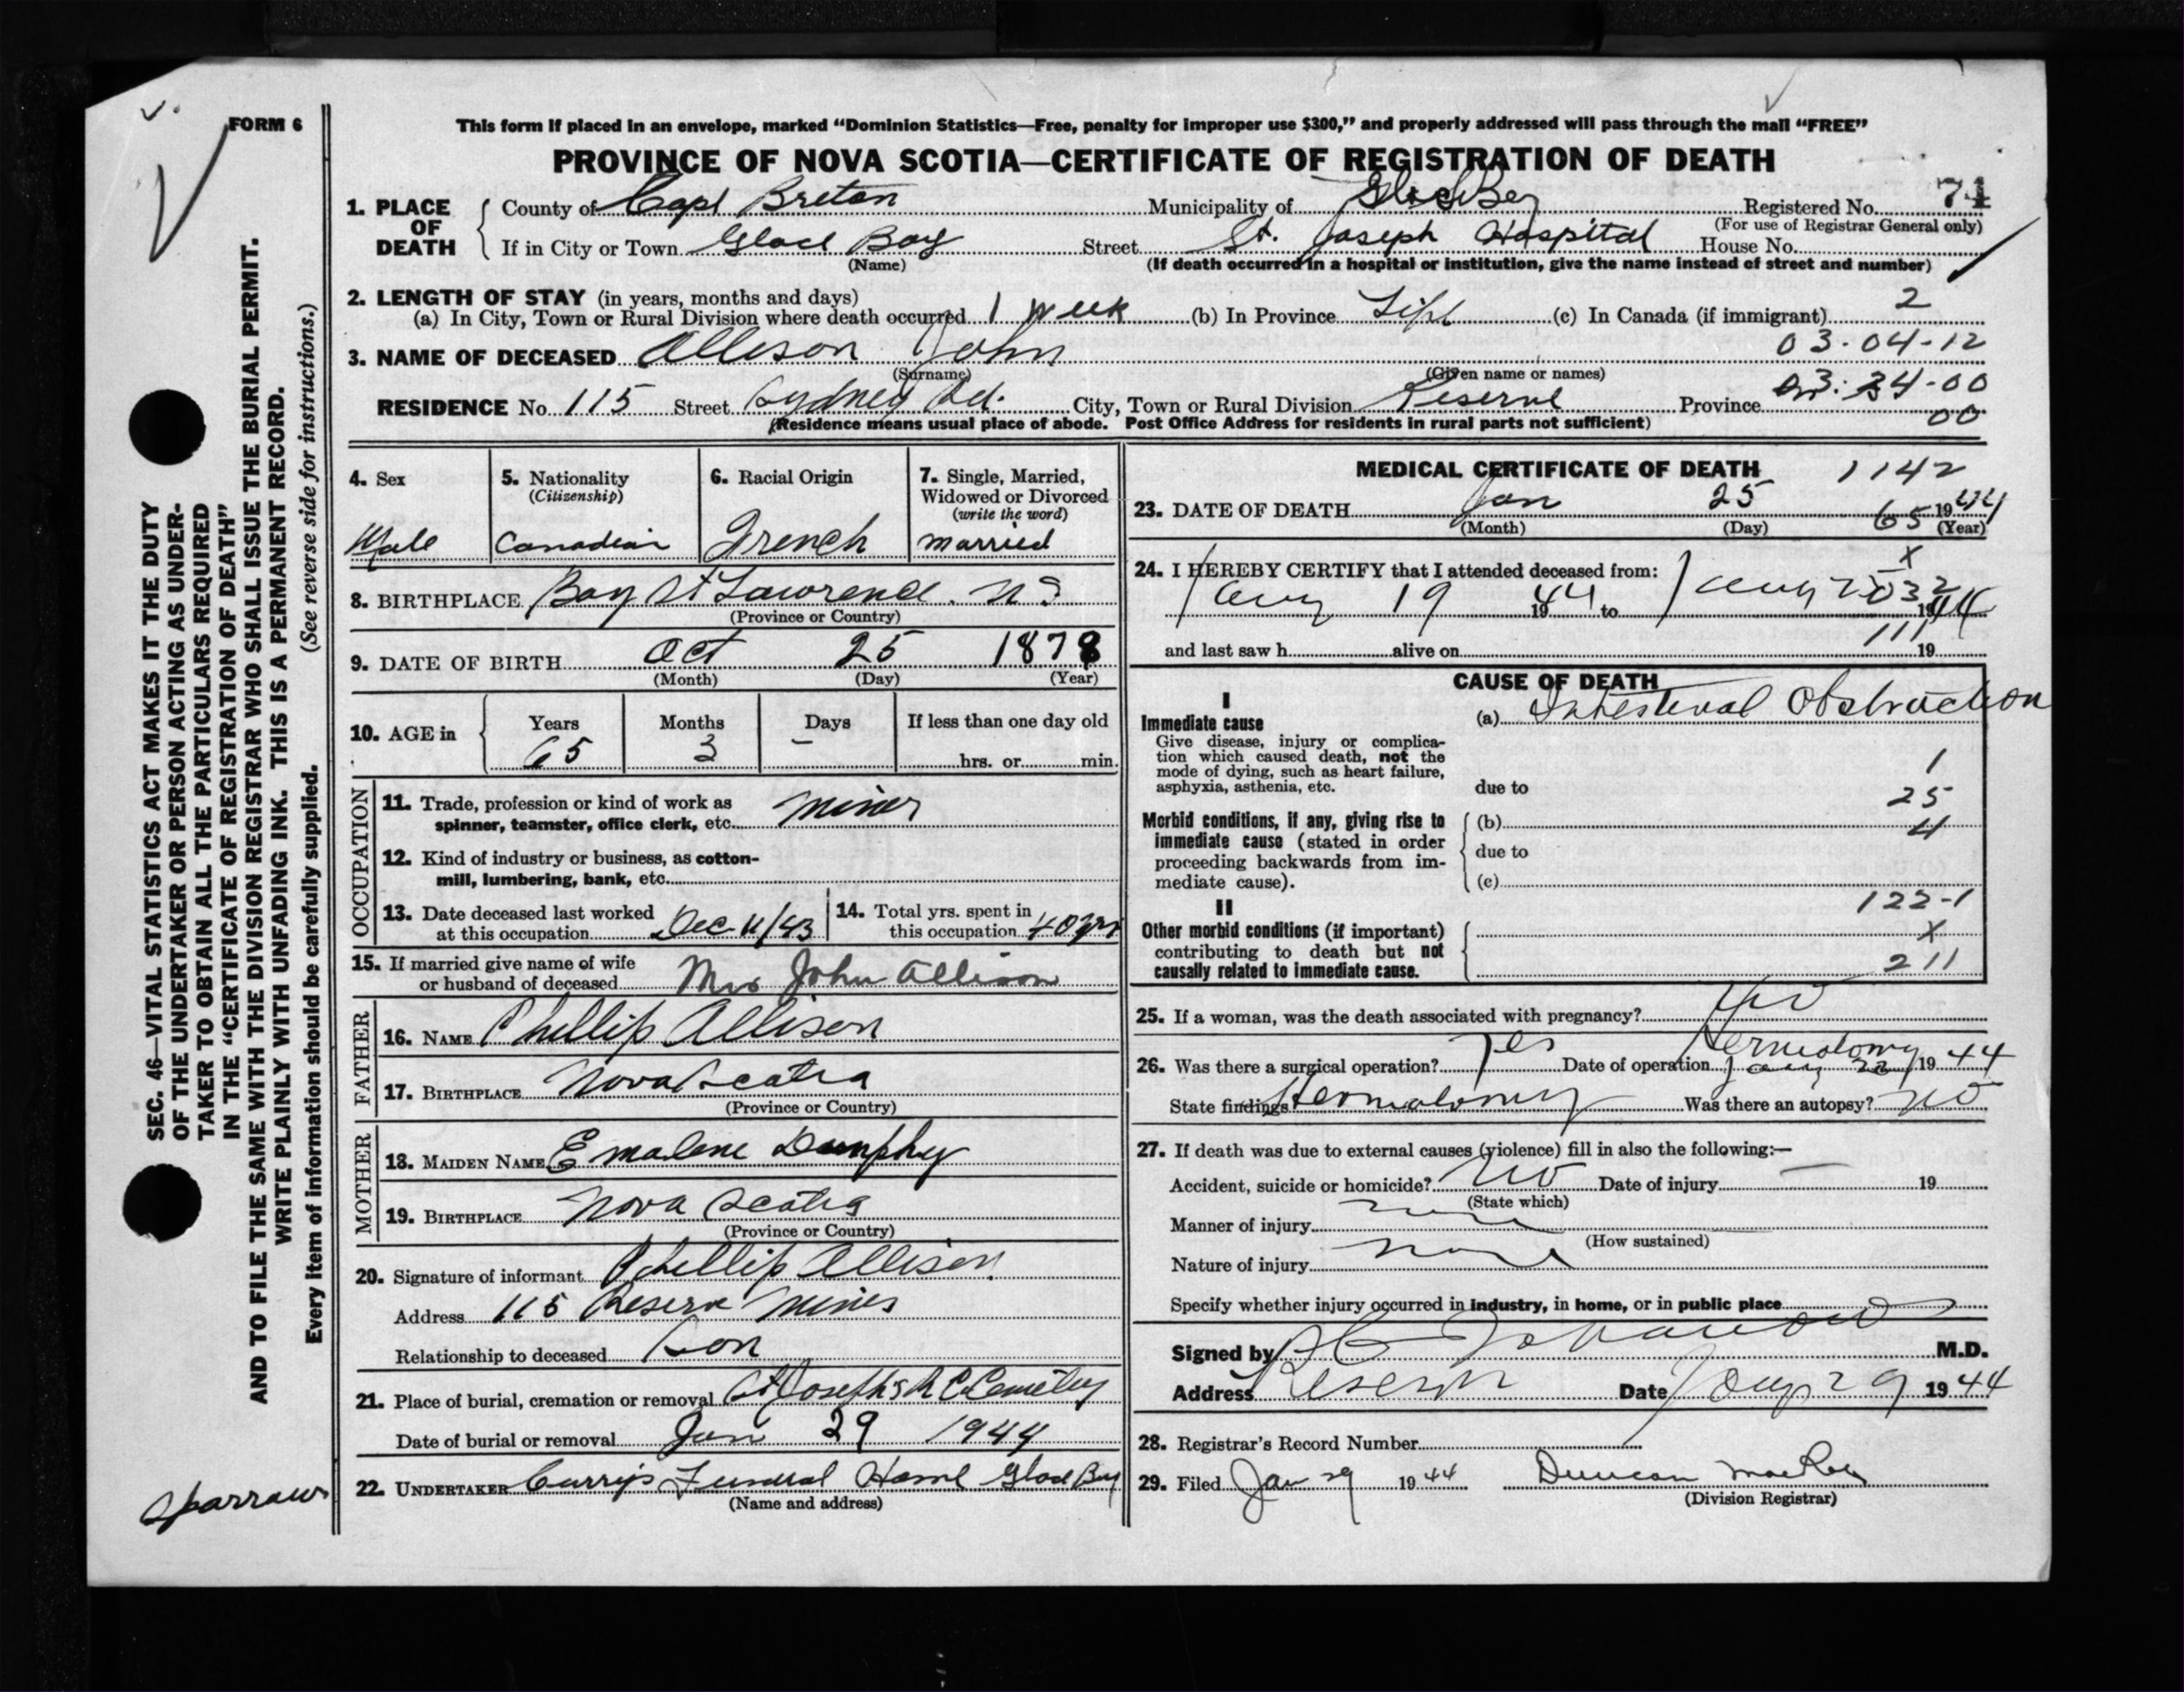 FORM 6
This form if placed in an envelope, marked “Dominion Statistics—Free, penalty for improper use $300,” and properly addressed will pass through the mail “FREE”
PROVINCE OF NOVA SCOTIA—CERTIFICATE OF REGISTRATION OF DEATH
1. PLACE OF DEATH
County of Cape Breton Municipality of Glace Bay Registered No. 74
(For use of Registrar General only)
If in City or Town Glace Bay Street St. Joseph Hospital House No.
(Name) (If death occurred in a hospital or institution, give the name instead of street and number)
2. LENGTH OF STAY (in years, months and days)
(a) In City, Town or Rural Division where death occurred 1 week (b) In Province Life (c) In Canada (if immigrant) 2
03-04-12
3. NAME OF DECEASED Allison John
(Surname) (Given name or names)
RESIDENCE No. 115 Street Sydney Rd. City, Town or Rural Division Reserve Province 03:34-00
00
(Residence means usual place of abode. Post Office Address for residents in rural parts not sufficient)
4. Sex Male
5. Nationality (Citizenship) Canadian
6. Racial Origin French
7. Single, Married, Widowed or Divorced (write the word) married
8. BIRTHPLACE Bay St Lawrence. N S
(Province or Country)
9. DATE OF BIRTH Oct 25 1878
(Month) (Day) (Year)
10. AGE in Years 65 Months 3 Days – If less than one day old hrs. or min.
OCCUPATION
11. Trade, profession or kind of work as spinner, teamster, office clerk, etc. miner
12. Kind of industry or business, as cotton-mill, lumbering, bank, etc.
13. Date deceased last worked at this occupation Dec 11/43
14. Total yrs. spent in this occupation 40 yrs
15. If married give name of wife or husband of deceased Mrs John Allison
FATHER
16. NAME Phillip Allison
17. BIRTHPLACE Nova Scotia
(Province or Country)
MOTHER
18. MAIDEN NAME Emalene Dumphy
19. BIRTHPLACE Nova Scotia
(Province or Country)
20. Signature of informant Phillip Allison
Address 115 Reserve Mines
Relationship to deceased Son
21. Place of burial, cremation or removal St Joseph's R C Cemetery
Date of burial or removal Jan 29 1944
22. UNDERTAKER Curry's Funeral Home Glace Bay
(Name and address)
MEDICAL CERTIFICATE OF DEATH 1142
23. DATE OF DEATH Jan 25 1944
65
(Month) (Day) (Year)
X
24. I HEREBY CERTIFY that I attended deceased from:
Jany 19 1944 to Jany 25 1944
032
111
and last saw h alive on 19
CAUSE OF DEATH
I
Immediate cause (a) Intestinal Obstruction
Give disease, injury or complication which caused death, not the mode of dying, such as heart failure, asphyxia, asthenia, etc.
due to
1
25
4
Morbid conditions, if any, giving rise to immediate cause (stated in order proceeding backwards from immediate cause).
(b)
due to
(c)
122-1
X
211
II
Other morbid conditions (if important) contributing to death but not causally related to immediate cause.
25. If a woman, was the death associated with pregnancy? No
26. Was there a surgical operation? Yes Date of operation Herniotomy Jany 22 1944
State findings Herniotomy Was there an autopsy? no
27. If death was due to external causes (violence) fill in also the following:—
Accident, suicide or homicide? No Date of injury — 19
(State which)
Manner of injury none
(How sustained)
Nature of injury none
Specify whether injury occurred in industry, in home, or in public place
Signed by M.D.
Address Reserve Date Jany 29 1944
28. Registrar's Record Number
29. Filed Jan 29 1944 Duncan
(Division Registrar)
SEC. 46—VITAL STATISTICS ACT MAKES IT THE DUTY
OF THE UNDERTAKER OR PERSON ACTING AS UNDER-
TAKER TO OBTAIN ALL THE PARTICULARS REQUIRED
IN THE “CERTIFICATE OF REGISTRATION OF DEATH”
AND TO FILE THE SAME WITH THE DIVISION REGISTRAR WHO SHALL ISSUE THE BURIAL PERMIT.
WRITE PLAINLY WITH UNFADING INK. THIS IS A PERMANENT RECORD.
Every item of information should be carefully supplied. (See reverse side for instructions.)
Sparrows